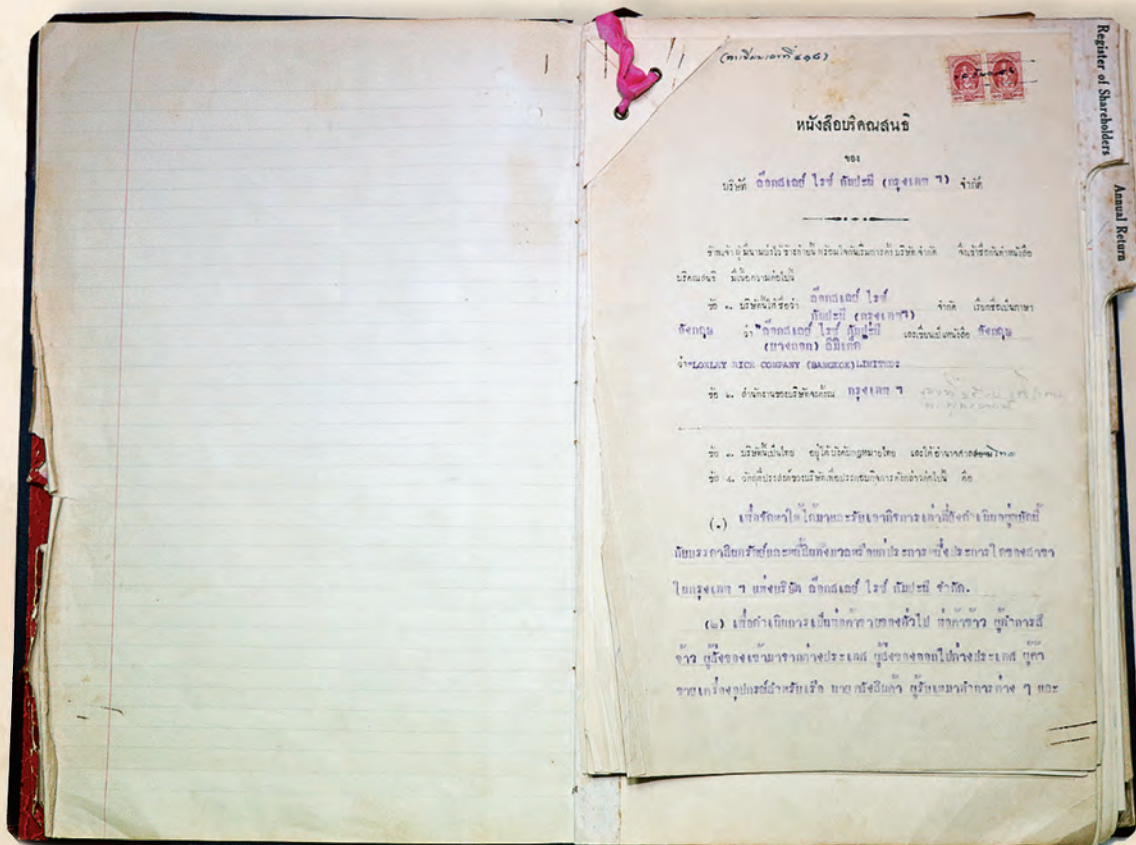 (ทะเบียนเลขที่ ๔๑๘)
หนังสือบริคณสนธิ
ของ
บริษัท ล๊อกสเลย์ ไรซ์ กัมปะนี (กรุงเทพ ฯ) จำกัด
ข้าพเจ้าผู้มีนามบ่งไว้ข้างท้ายนี้ พร้อมใจกันเริ่มการตั้งบริษัทจำกัด จึงเข้าชื่อกันทำหนังสือ
บริคณสนธิ มีเนื้อความต่อไปนี้
ข้อ ๑. บริษัทนี้ให้ชื่อว่า ล๊อกสเลย์ ไรซ์ กัมปะนี (กรุงเทพฯ) จำกัด เรียกชื่อเป็นภาษา
อังกฤษ ว่า "ล๊อกสเลย์ ไรซ์ กัมปะนี (บางกอก) ลิมิเต็ด และเขียนเป็นหนังสือ อังกฤษ
ว่า "LOXLEY RICE COMPANY (BANGKOK) LIMITED"
ข้อ ๒. สำนักงานของบริษัทจะตั้งณ กรุงเทพ ฯ
ข้อ ๓. บริษัทนี้เป็นไทย อยู่ใต้บังคับกฎหมายไทย และใต้อำนาจศาล
ข้อ ๔. วัตถุที่ประสงค์ของบริษัทเพื่อประกอบกิจการดังกล่าวต่อไปนี้ คือ
(๑) เพื่อจัดหาให้ได้มาและรับเอากิจการเค้าที่ยังดำเนินอยู่บัดนี้
กับบรรดาสินทรัพย์และหนี้สินทั้งมวลหรือแต่ประการหนึ่งประการใดของสาขา
ในกรุงเทพ ฯ แห่งบริษัท ล๊อกสเลย์ ไรซ์ กัมปะนี จำกัด.
(๒) เพื่อดำเนินการเป็นพ่อค้าขายของทั่วไป พ่อค้าข้าว ผู้ทำการสี
ข้าว ผู้สั่งของเข้ามาจากต่างประเทศ ผู้ส่งของออกไปต่างประเทศ ผู้ค้า
ขายเครื่องอุปกรณ์สำหรับเรือ นายคลังสินค้า ผู้รับเหมาทำการต่าง ๆ และ
Register of Shareholders
Annual Return